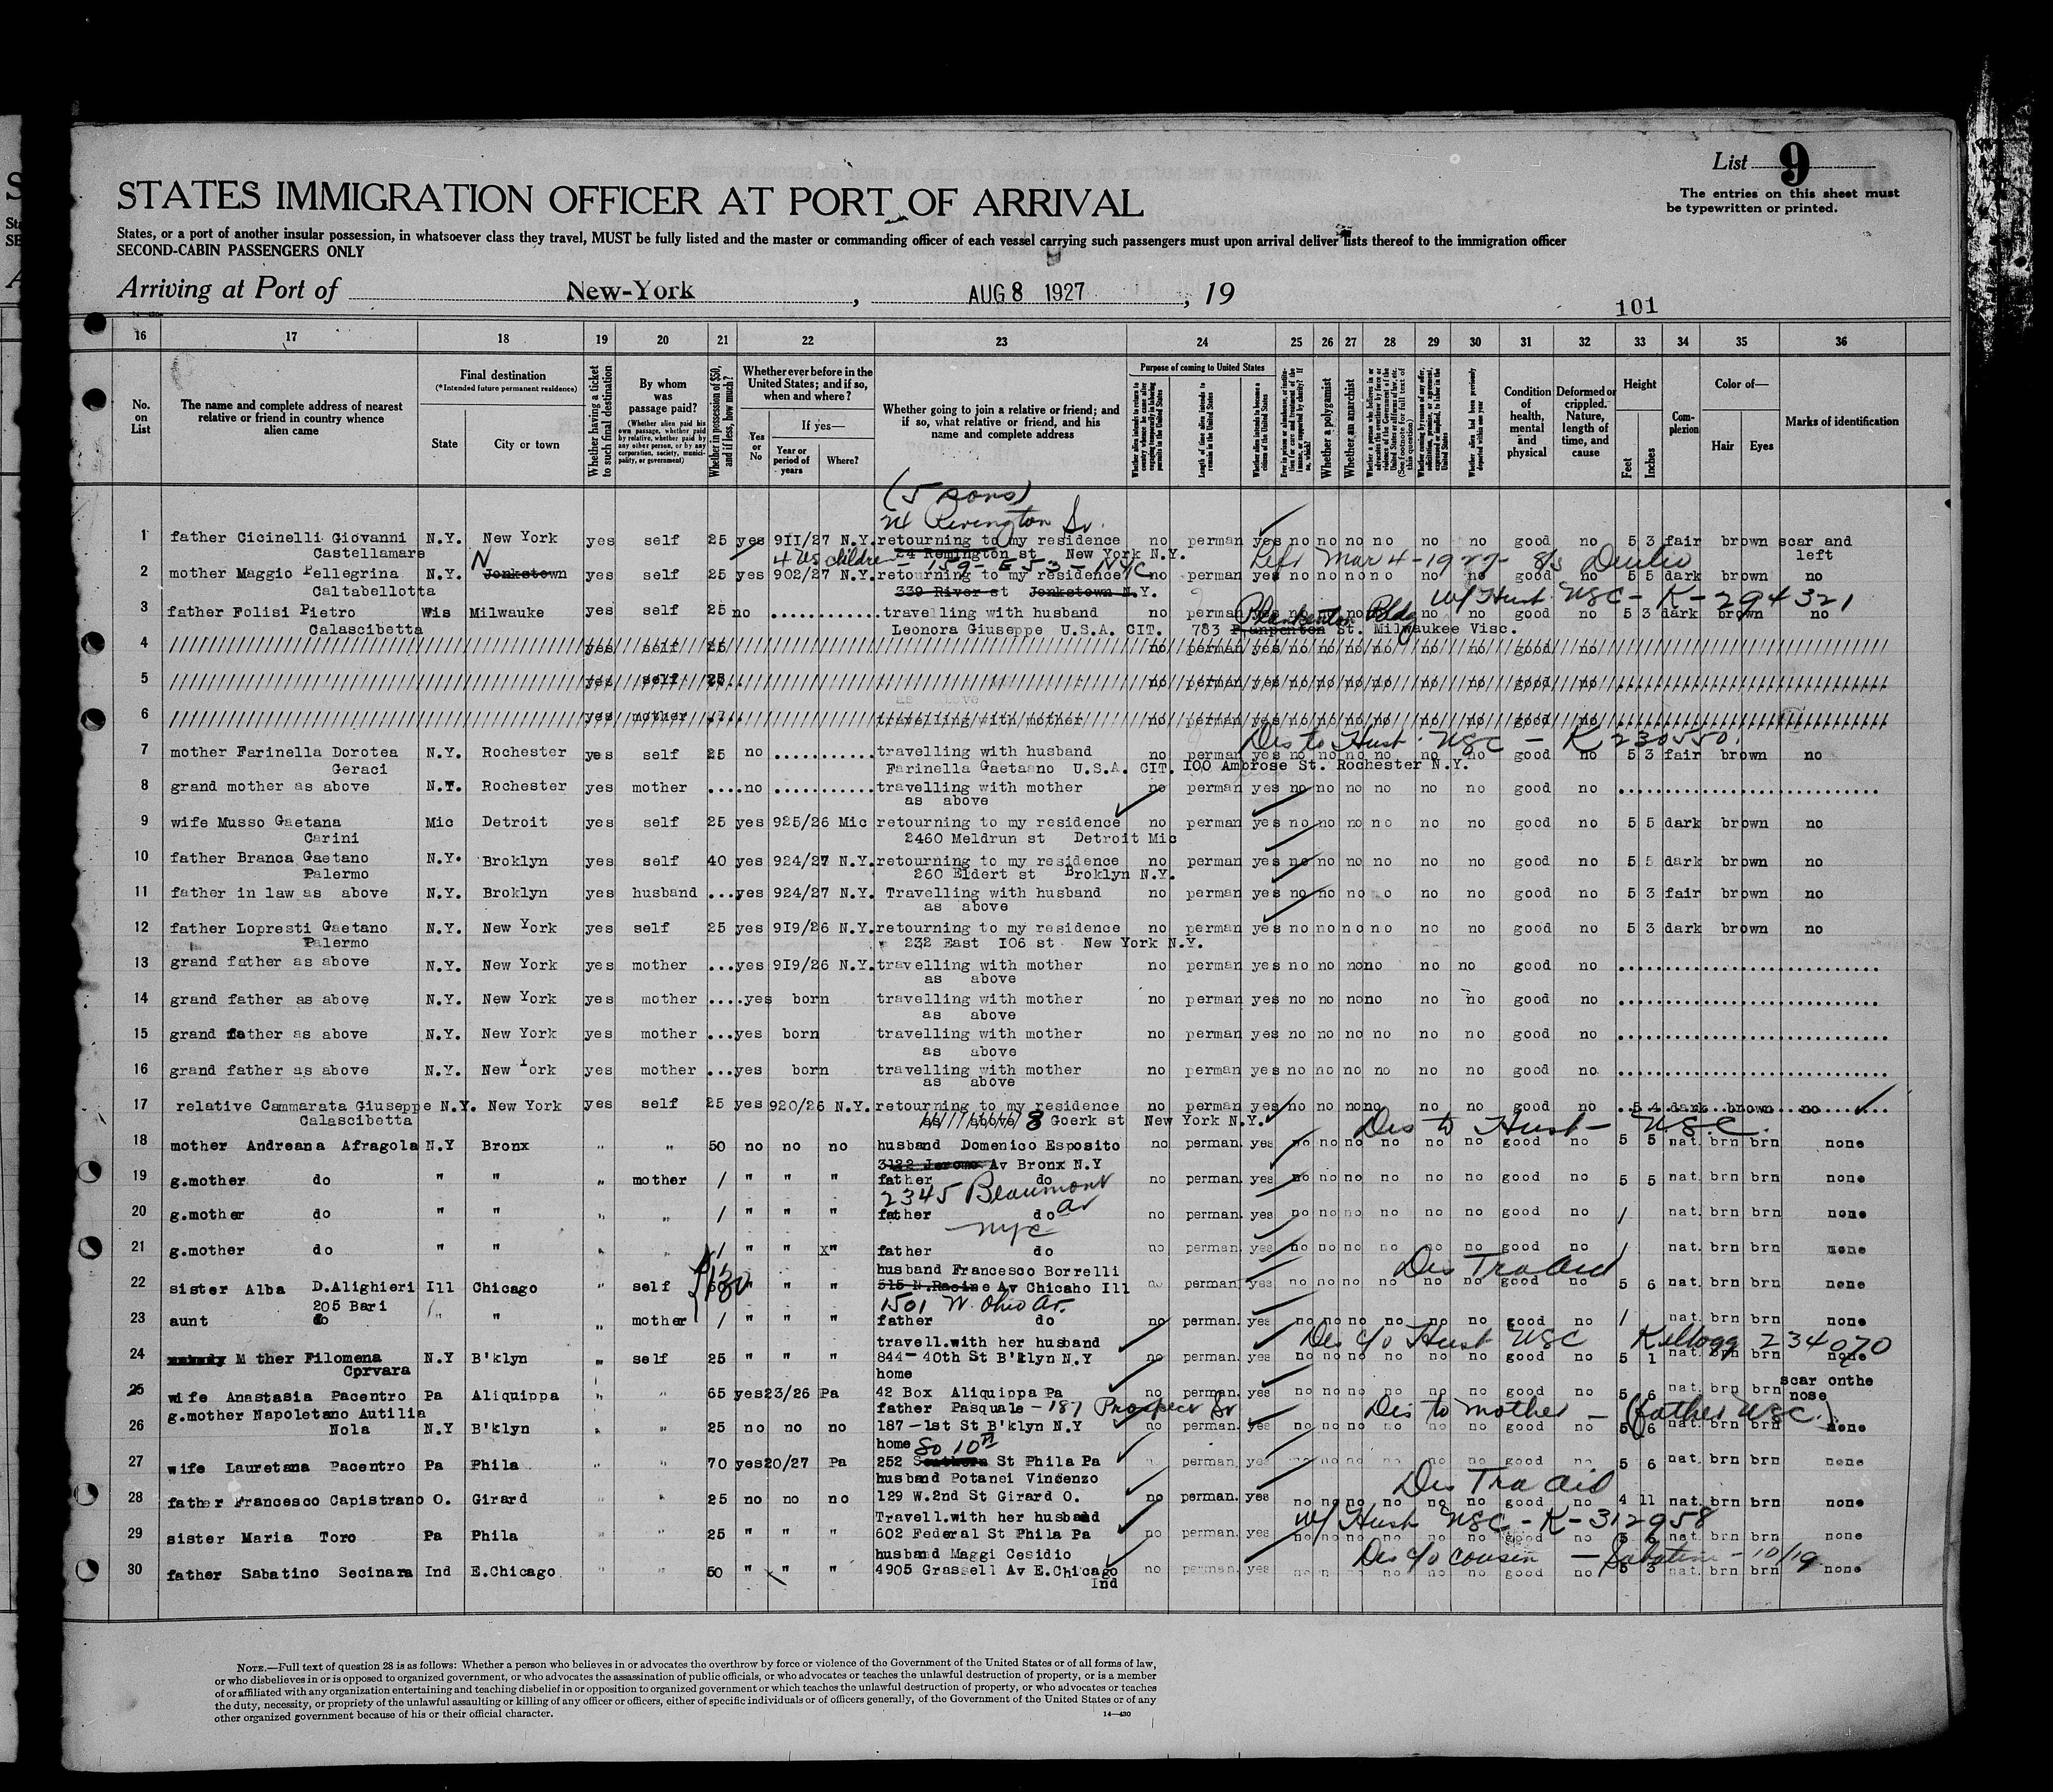 List 9
The entries on this sheet must
be typewritten or printed.
STATES IMMIGRATION OFFICER AT PORT OF ARRIVAL
States, or a port of another insular possession, in whatsoever class they travel, MUST be fully listed and the master or commanding officer of each vessel carrying such passengers must upon arrival deliver lists thereof to the immigration officer
SECOND-CABIN PASSENGERS ONLY
Arriving at Port of New-York, AUG 8 1927, 19
101
16 17 18 19 20 21 22 23 24 25 26 27 28 29 30 31 32 33 34 35 36
No. on List
The name and complete address of nearest relative or friend in country whence alien came
Final destination
(*Intended future permanent residence)
State
City or town
Whether having a ticket to such final destination
By whom was passage paid?
(Whether alien paid his own passage, whether paid by relative, whether paid by any other person, or by any corporation, society, municipality, or government)
Whether in possession of $50, and if less, how much?
Whether ever before in the United States; and if so, when and where?
Yes or No
If yes—
Year or period of years
Where?
Whether going to join a relative or friend; and if so, what relative or friend, and his name and complete address
Purpose of coming to United States
Length of time alien intends to remain in the United States
Whether alien intends to become a citizen of the United States
Whether a polygamist
Whether an anarchist
Condition of health, mental and physical
Deformed or crippled. Nature, length of time, and cause
Height
Feet
Inches
Complexion
Color of—
Hair
Eyes
Marks of identification
(5 sons)
21 Rivington St.
1 father Cicinelli Giovanni N.Y. New York yes self 25 yes 9II/27 N.Y. retourning to my residence no perman yes no no no no no no good no 5 3 fair brown scar and
Castellamare 24 Remington st New York N.Y. left
4 US children - 159 - E 53 - NYC Left Mar 4 - 1927 - S/S Duilio
2 mother Maggio Pellegrina N.Y. Jonkstown yes self 25 yes 902/27 N.Y. retourning to my residence no perman yes no no no no no no good no 5 5 dark brown no
Caltabellotta 339 River st Jonkstown N.Y.
W/ Husb USC - K-294321
3 father Folisi Pietro Wis Milwauke yes self 25 no travelling with husband no perman yes no no no no no no good no 5 3 dark brown no
Calascibetta Leonora Giuseppe U.S.A. CIT. 783 Planpenton St. Milwaukee Visc.
Plankenton Bldg
4 yes self 25 no perman yes no no no no no no good no
5 yes self 25 no perman yes no no no no no no good no
as above
6 yes mother travelling with mother no perman yes no no no no no no good no
Des to Husb. USC - K 230550
7 mother Farinella Dorotea N.Y. Rochester yes self 25 no travelling with husband no perman yes no no no no no no good no 5 3 fair brown no
Geraci Farinella Gaetaano U.S.A. CIT. I00 Ambrose St. Rochester N.Y.
8 grand mother as above N.Y. Rochester yes mother no travelling with mother no perman yes no no no no no no good no
as above
9 wife Musso Gaetana Mic Detroit yes self 25 yes 925/26 Mic retourning to my residence no perman yes no no no no no no good no 5 5 dark brown no
Carini 2460 Meldrun st Detroit Mic
10 father Branca Gaetano N.Y. Broklyn yes self 40 yes 924/27 N.Y. retourning to my residence no perman yes no no no no no no good no 5 5 dark brown no
Palermo 260 Eldert st Broklyn N.Y.
11 father in law as above N.Y. Broklyn yes husband yes 924/27 N.Y. Travelling with husband no perman yes no no no o no no good no 5 3 fair brown no
as above
12 father Lopresti Gaetano N.Y. New York yes self 25 yes 9I9/26 N.Y. retourning to my residence no perman yes no no no no no no good no 5 3 dark brown no
Palermo 232 East I06 st New York N.Y.
13 grand father as above N.Y. New York yes mother ...yes 9I9/26 N.Y. travelling with mother no perman yes no no no no no no good no
as above
14 grand father as above N.Y. New York yes mother ....yes born travelling with mother no perman yes no no no no no no good no
as above
15 grand father as above N.Y. New York yes mother ...yes born travelling with mother no perman yes no no no no no no good no
as above
16 grand father as above N.Y. New York yes mother ...yes born travelling with mother no perman yes no no no no no no good no
as above
17 relative Cammarata Giuseppe N.Y. New York yes self 25 yes 920/26 N.Y. retourning to my residence no perman yes no no no no no no good no 5 4 dark brown no
Calascibetta as above 8 Goerk st New York N.Y.
Des to Husb - USC.
18 mother Andreana Afragola N.Y Bronx " " 50 no no no husband Domenico Esposito no perman. yes no no no no no no good no 5 5 nat. brn brn none
3122 Jerome Av Bronx N.Y
19 g.mother do " " " mother / " " " father do no perman. yes no no no no no no good no 5 5 nat. brn brn none
2345 Beaumont Av
20 g.mother do " " " " / " " " father do no perman. yes no no no no no no good no / nat. brn brn none
NYC
21 g.mother do " " " " / " " X" father do no perman. yes no no no no no no good no / nat. brn brn none
husband Francesco Borrelli Des Tra Aid
22 sister Alba D.Alighieri Ill Chicago " self 130 " " " 515 N.Racine Av Chicaho Ill no perman. yes no no no no no no good no 5 6 nat. brn brn none
205 Bari 1501 W. Ohio Av.
23 aunt do " " " mother / " " " father do no perman. yes no no no no no no good no / nat. brn brn none
travell.with her husband Des c/o Husb USC Kellogg 234070
24 M ther Filomena N.Y B'klyn " self 25 " " " 844- 40th St B'klyn N.Y no perman. yes no no no no no no good no 5 1 nat. brn brn none
Cprvara home scar onthe
25 wife Anastasia Pacentro Pa Aliquippa " " 65 yes 23/26 Pa 42 Box Aliquippa Pa no perman. yes no no no no no no good no 5 6 nat. brn brn nose
g.mother Napoletano Autilia father Pasquale - 187 Prospect Av Des to mother - (father USC.)
26 Nola N.Y B'klyn " " 25 no no no 187 -1st St B'klyn N.Y no perman. yes no no no no no no good no 5 6 nat. brn brn none
home So 10th
27 wife Lauretana Pacentro Pa Phila " " 70 yes 20/27 Pa 252 Southern St Phila Pa perman. yes no no no no no no good no 5 6 nat. brn brn none
husband Potanei Vincenzo Des Tra Aid
28 father Francesco Capistrano O. Girard " " 25 no no no 129 W.2nd St Girard O. no perman. yes no no no no no no good no 4 11 nat. brn brn none
Travell.with her husband W/ Husb USC - K-312958
29 sister Maria Toro Pa Phila " " 25 " " " 602 Federal St Phila Pa no perman. yes no no no no no no good no 5 6 nat. brn brn none
husband Maggi Cesidio Des c/o cousin - Sabatini - 10/19
30 father Sabatino Secinara Ind E.Chicago " " 50 " " " 4905 Grassell Av E.Chicago no perman. yes no no no no no no good no 5 3 nat. brn brn none
Ind
NOTE.—Full text of question 28 is as follows: Whether a person who believes in or advocates the overthrow by force or violence of the Government of the United States or of all forms of law,
or who disbelieves in or is opposed to organized government, or who advocates the assassination of public officials, or who advocates or teaches the unlawful destruction of property, or is a member
of or affiliated with any organization entertaining and teaching disbelief in or opposition to organized government or which teaches the unlawful destruction of property, or who advocates or teaches
the duty, necessity, or propriety of the unlawful assaulting or killing of any officer or officers, either of specific individuals or of officers generally, of the Government of the United States or of any
other organized government because of his or their official character.
14—430